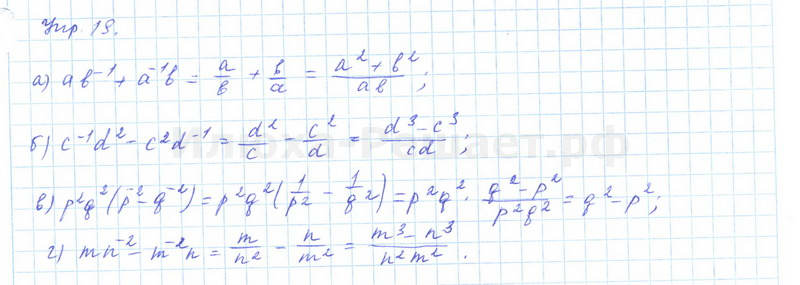 Упр 19.
а) ab⁻¹ + a⁻¹b = a/b + b/a = (a² + b²)/(ab) ;
б) c⁻¹d² − c²d⁻¹ = d²/c − c²/d = (d³ − c³)/(cd) ;
в) p²q²(p⁻² − q⁻²) = p²q²(1/p² − 1/q²) = p²q² · (q² − p²)/(p²q²) = q² − p² ;
г) mn⁻² − m⁻²n = m/n² − n/m² = (m³ − n³)/(n²m²) .